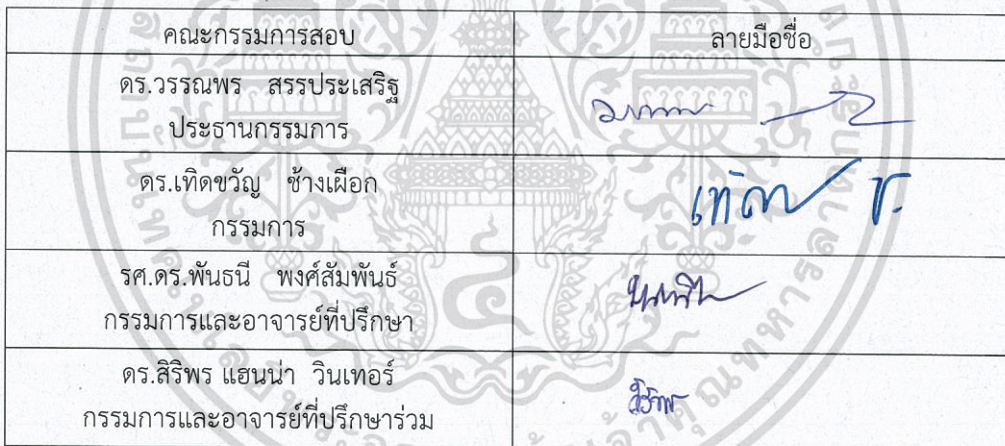 คณะกรรมการสอบ ลายมือชื่อ
ดร.วรรณพร สรรประเสริฐ
ประธานกรรมการ
ดร.เทิดขวัญ ช้างเผือก
กรรมการ
รศ.ดร.พันธนี พงศ์สัมพันธ์
กรรมการและอาจารย์ที่ปรึกษา
ดร.สิริพร แฮนน่า วินเทอร์
กรรมการและอาจารย์ที่ปรึกษาร่วม